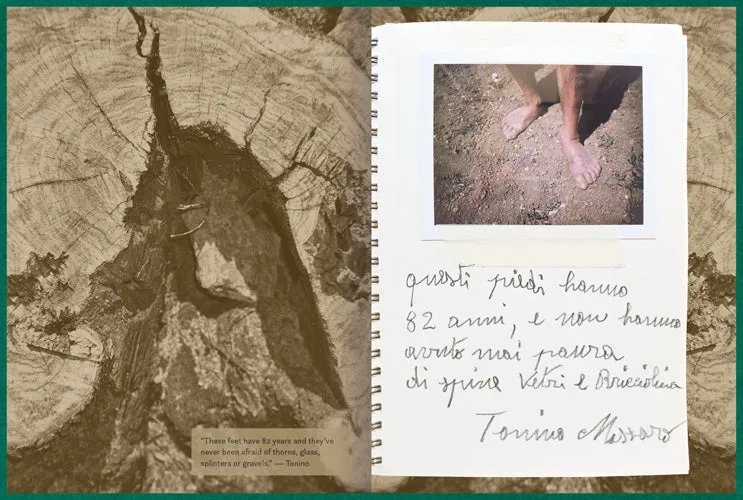 "These feet have 82 years and they've
never been afraid of thorns, glass,
splinters or gravels." — Tonino
questi piedi hanno
82 anni, e non hanno
avuto mai paura
di spine vetri e Bricciolina
Tonino